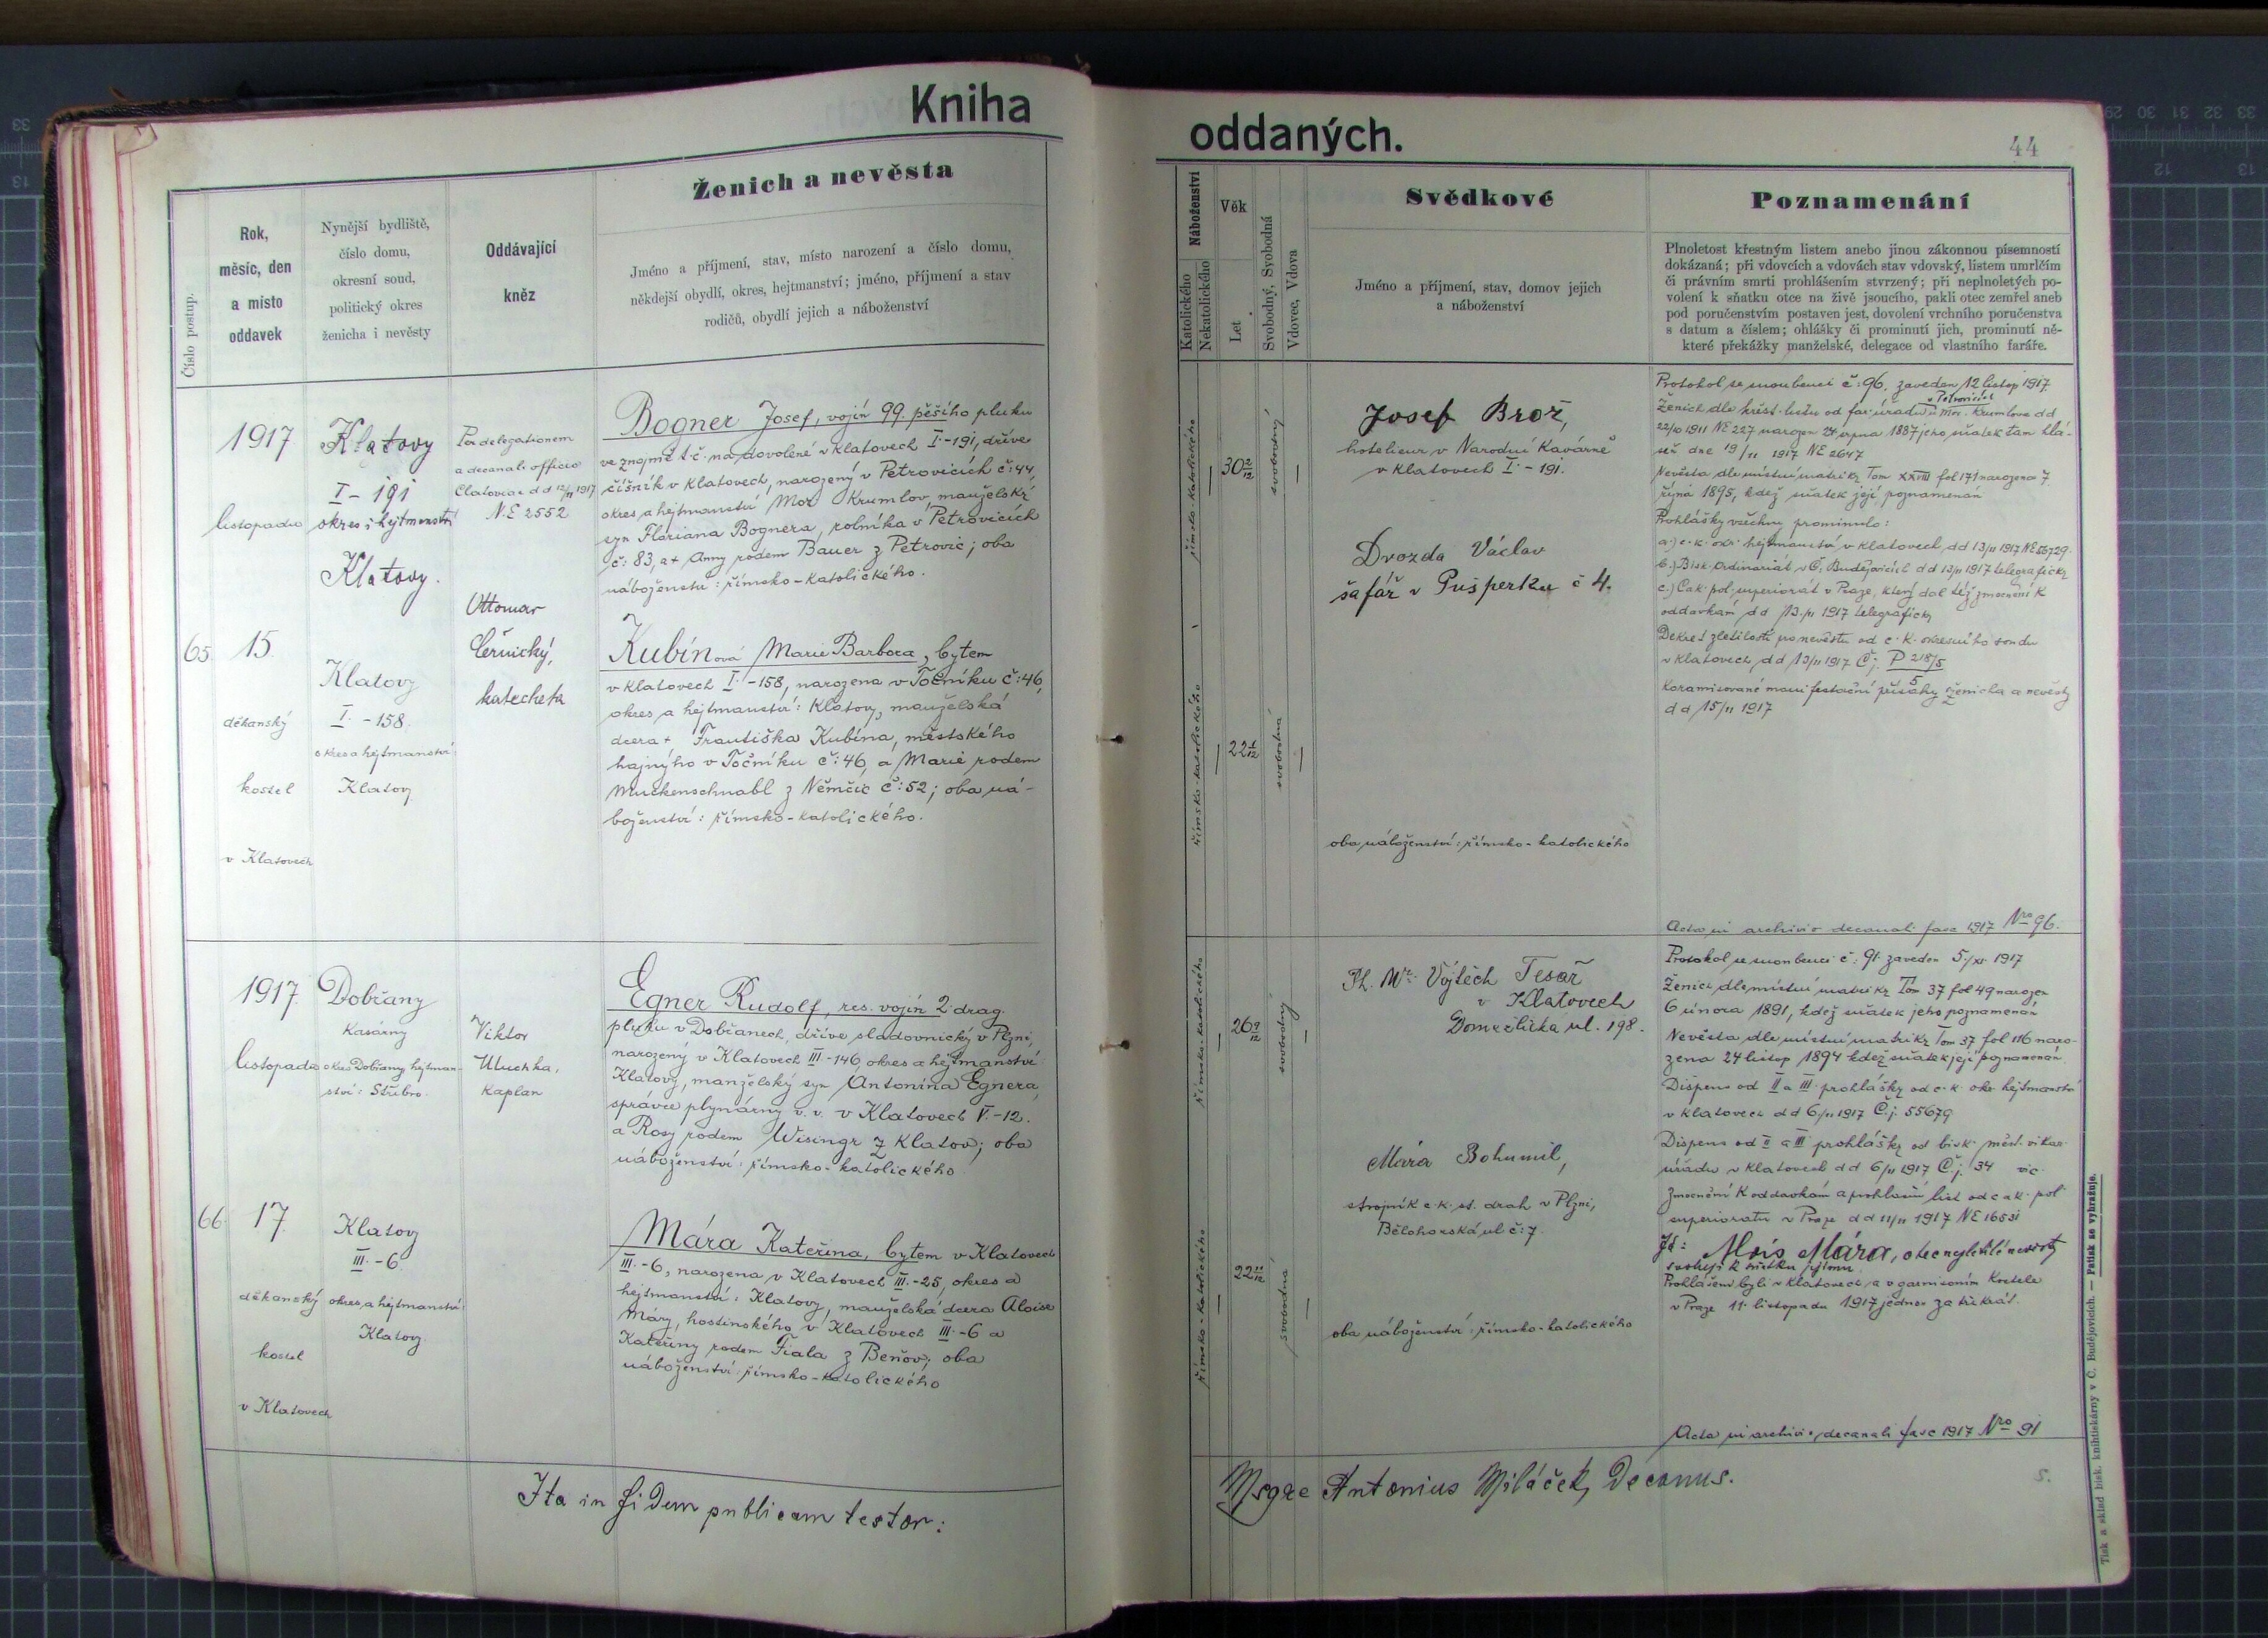 Kniha
oddaných.
44
Číslo postup.
Rok,
měsíc, den
a místo
oddavek
Nynější bydliště,
číslo domu,
okresní soud,
politický okres
ženicha i nevěsty
Oddávající
kněz
Ženich a nevěsta
Jméno a příjmení, stav, místo narození a číslo domu,
někdejší obydlí, okres, hejtmanství; jméno, příjmení a stav
rodičů, obydlí jejich a náboženství
Náboženství
Katolického
Nekatolického
Věk
Let
Svobodný, Svobodná
Vdovec, Vdova
Svědkové
Jméno a příjmení, stav, domov jejich
a náboženství
Poznamenání
Plnoletost křestným listem anebo jinou zákonnou písemností
dokázaná; při vdovcích a vdovách stav vdovský, listem umrlčím
či právním smrti prohlášením stvrzený; při neplnoletých po-
volení k sňatku otce na živě jsoucího, pakli otec zemřel aneb
pod poručenstvím postaven jest, dovolení vrchního poručenstva
s datum a číslem; ohlášky či prominutí jich, prominutí ně-
které překážky manželské, delegace od vlastního faráře.
65.
1917
listopadu
15.
děkanský
kostel
v Klatovech
Klatovy
I - 191
okres i hejtmanství
Klatovy.
Klatovy
I. - 158.
okres a hejtmanství:
Klatovy
Per delegationem
a decanali officio
Clatoviae dd 12/11 1917
N.E 2552
Ottomar
Černický,
katecheta
Bogner Josef, vojín 99. pěšího pluku
ve Znojmě t.č. na dovolené v Klatovech I.-191, dříve
číšník v Klatovech, narozený v Petrovicích č:44,
okres a hejtmanství Mor. Krumlov, manželský
syn Floriana Bognera, rolníka v Petrovicích
č: 83, a + Anny rodem Bauer z Petrovic; oba
náboženství: římsko-katolického.
Kubínová Marie Barbora, bytem
v Klatovech I.-158, narozena v Točníku č:46,
okres a hejtmanství: Klatovy, manželská
dcera + Františka Kubína, městského
hajného v Točníku č:46, a Marie rodem
Muckenschnabl z Němčic č:52; oba ná-
boženství: římsko-katolického.
římsko-katolického
30 2/12
svobodný
římsko-katolického
22 1/12
svobodná
Josef Brož,
hotelieur v Narodní Kavárně
v Klatovech I. - 191.
Drozda Václav
šafář v Pušperku č 4.
oba náboženství: římsko-katolického
Protokol se snoubenci č: 96. zaveden 12 listop 1917.
v Petrovicích
Ženich dle křest. listu od far. úřadu u Mor. Krumlova dd
22/10 1911 NE 227 narozen 24 srpna 1887 jeho sňatek tam hlá-
šen dne 19/11 1917 NE 2647
Nevěsta dle místní matriky Tom XXVIII fol 171 narozena 7.
října 1895, kdež sňatek její poznamenán
Prohlášky všechny prominulo:
a.) c. k. okr. hejtmanství v Klatovech, dd 13/11 1917 NE 56729.
b.) Bisk. Ordinariát v Č. Budějovicích dd 13/11 1917 telegraficky
c.) Cak. pol. superiorát v Praze, který dal též zmocnění k
oddavkám dd 13/11 1917 telegraficky
Dekret zletilosti pro nevěstu od c. k. okresního soudu
v Klatovech, dd 13/11 1917 Č.j. P 218/5
5
manifestační přísahy ženicha a nevěsty
dd 15/11 1917
Acta in archivio decanali fasc 1917 Nro 96.
66.
1917.
listopadu
17.
děkanský
kostel
v Klatovech
Dobřany
Kasárny
okres Dobřany hejtman-
ství: Stříbro.
Klatovy
III. - 6.
okres, a hejtmanství:
Klatovy.
Viktor
Uluchka,
kaplan
Egner Rudolf, res. vojín 2 drag.
pluku v Dobřanech, dříve sladovnický v Plzni,
narozený v Klatovech III-146, okres a hejtmanství
Klatovy, manželský syn Antonína Egnera,
správce plynárny v. v. v Klatovech V.-12.
a Rosy rodem Wisingr z Klatov; oba
náboženství: římsko-katolického
Mára Kateřina, bytem v Klatovech
III.-6, narozena v Klatovech III.-25, okres a
hejtmanství: Klatovy, manželská dcera Aloise
Máry, hostinského v Klatovech III.-6 a
Kateřiny rodem Fiala z Beňov; oba
náboženství: římsko-katolického
římsko-katolického
26 9/12
svobodný
římsko-katolického
22 11/12
svobodná
Ph. Mr. Vojtěch Tesař
v Klatovech
Domažlická ul. 198.
Mára Bohumil,
strojník c. k. st. drah v Plzni,
Bělohorská ul č: 7.
oba náboženství: římsko-katolického
Protokol se snoubenci č: 91. zaveden 5/XI. 1917
Ženich dle místní matriky Tom 37 fol 49 narozen
6 února 1891, kdež sňatek jeho poznamenán
Nevěsta dle místní matriky Tom 37 fol 116 naro-
zena 24 listop 1894 kdež sňatek její poznamenán
Dispens od II a III. prohlášky od c. k. okr. hejtmanství
v Klatovech dd 6/11 1917 Č.j. 55679.
Dispens od II a III prohlášky od bisk. měst. vikar.
úřadu v Klatovech dd 6/11 1917 Č.j. 34 vic.
Zmocnění k oddavkám a prohlašní list od c a k. pol.
superiorátu v Praze dd 11/11 1917 NE 16531
Já: Alois Mára, otec nezletilé nevěsty
svoluji k sňatku
Prohlášeni byli v Klatovech, a v garnisoním Kostele
v Praze 11. listopadu 1917 jednou za třikrát.
Acta in archivio decanali fasc 1917 Nro 91
Ita in fidem publicam testor:
Msgre Antonius Miláček, Decanus.
s.
Tisk a sklad bisk. knihtiskárny v Č. Budějovicích. — Patisk se vyhražuje.